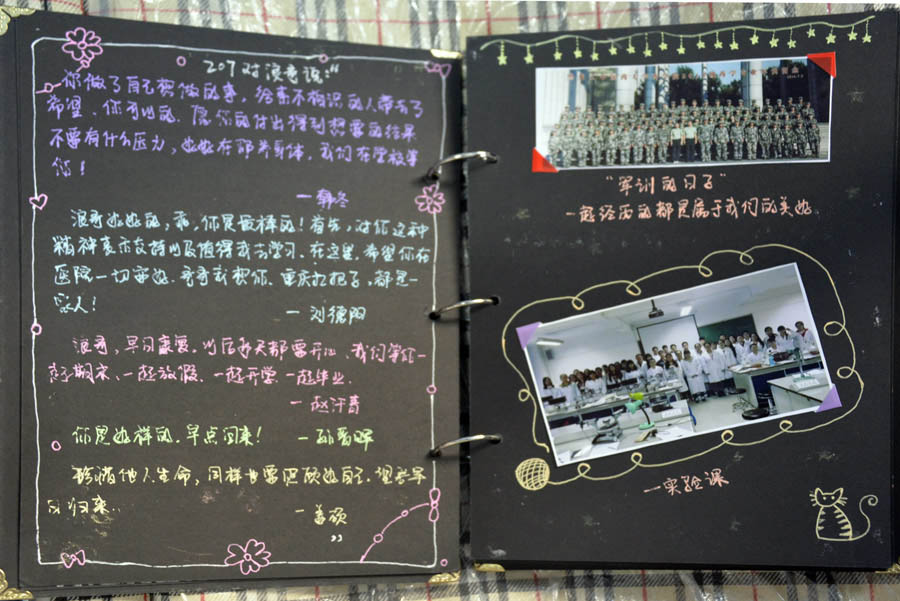 207对浪哥说:“
你做了自己想做的事,给素不相识的人带去了
希望、你可以的.愿你的付出得到想要的结果
不要有什么压力,好好在那养身体,我们在学校等
你!
—韩冬
浪哥好好的,乖,你是最棒的!首先,对你这种
精神表示支持以及值得我去学习.在这里,希望你在
医院一切安好.哥哥我想你.重庆扛把子,都是一
家人!
—刘德阳
浪哥,早日康复.以后每天都要开心、我们等你一
起期末、一起放假、一起开学、一起毕业.
—赵汗青
你是好样的.早点回来!
珍惜他人生命,同样也要照顾好自己.望君早
日归来.
—姜硕
”
“军训的日子”
一起经历的都是属于我们的美好.
—实验课